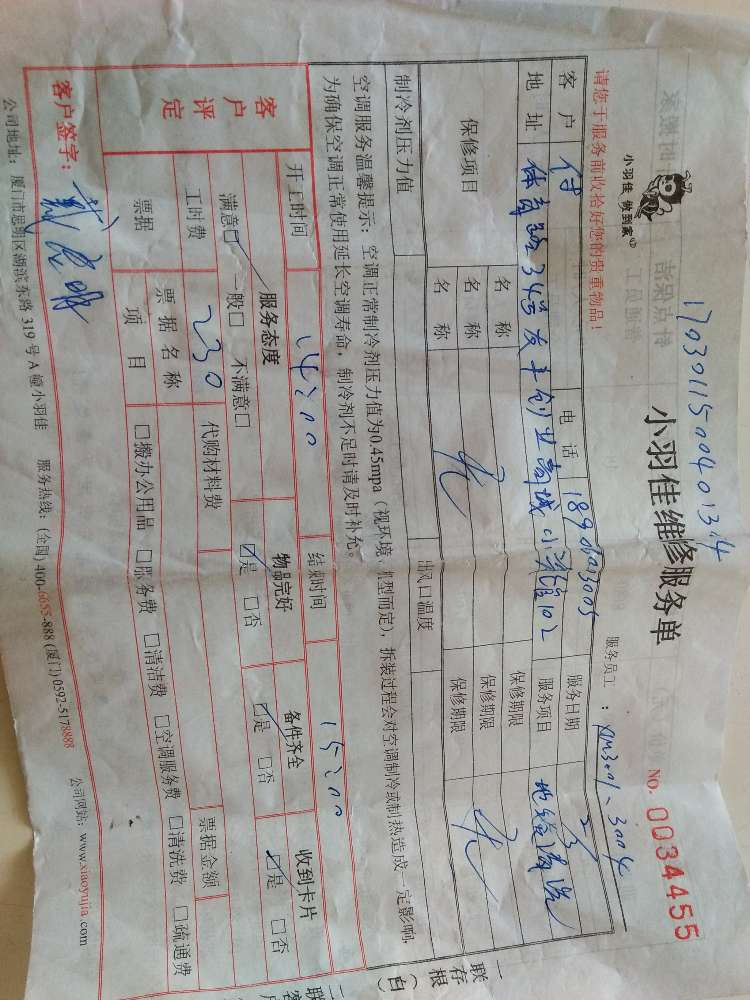 17030115004013.4
小羽佳 做到家
小羽佳维修服务单
NO. 0034455
请您于服务前收拾好您的贵重物品!
服务员工 :
客户 付 电话 服务日期
地址 体育路34号 创业商城 102 服务项目 地毯清洗
保修项目 名称 无 保修期限 无
名称 保修期限
名称 保修期限
制冷剂压力值 出风口温度
空调服务温馨提示:空调正常制冷剂压力值为0.45mpa(视环境、机型而定),拆装过程会对空调制冷或制热造成一定影响,
为确保空调正常使用延长空调寿命,制冷剂不足时请及时补充。
客户评定 开工时间 14:00 结束时间 15:00
服务态度 物品完好 备件齐全 收到卡片
满意☑ 一般□ 不满意□ ☑是 □否 ☑是 □否 ☑是 □否
工时费 230 代购材料费 票据金额
票据 票据名称
项目 □搬办公用品 □服务费 □清洁费 □空调服务费 □清洗费 □疏通费
客户签字:
公司地址:厦门市思明区湖滨东路319号A幢小羽佳 服务热线:(全国)400-6655-888 (厦门)0592-5178888 公司网站:www.xiaoyujia.com
一联 存根(白)
二联